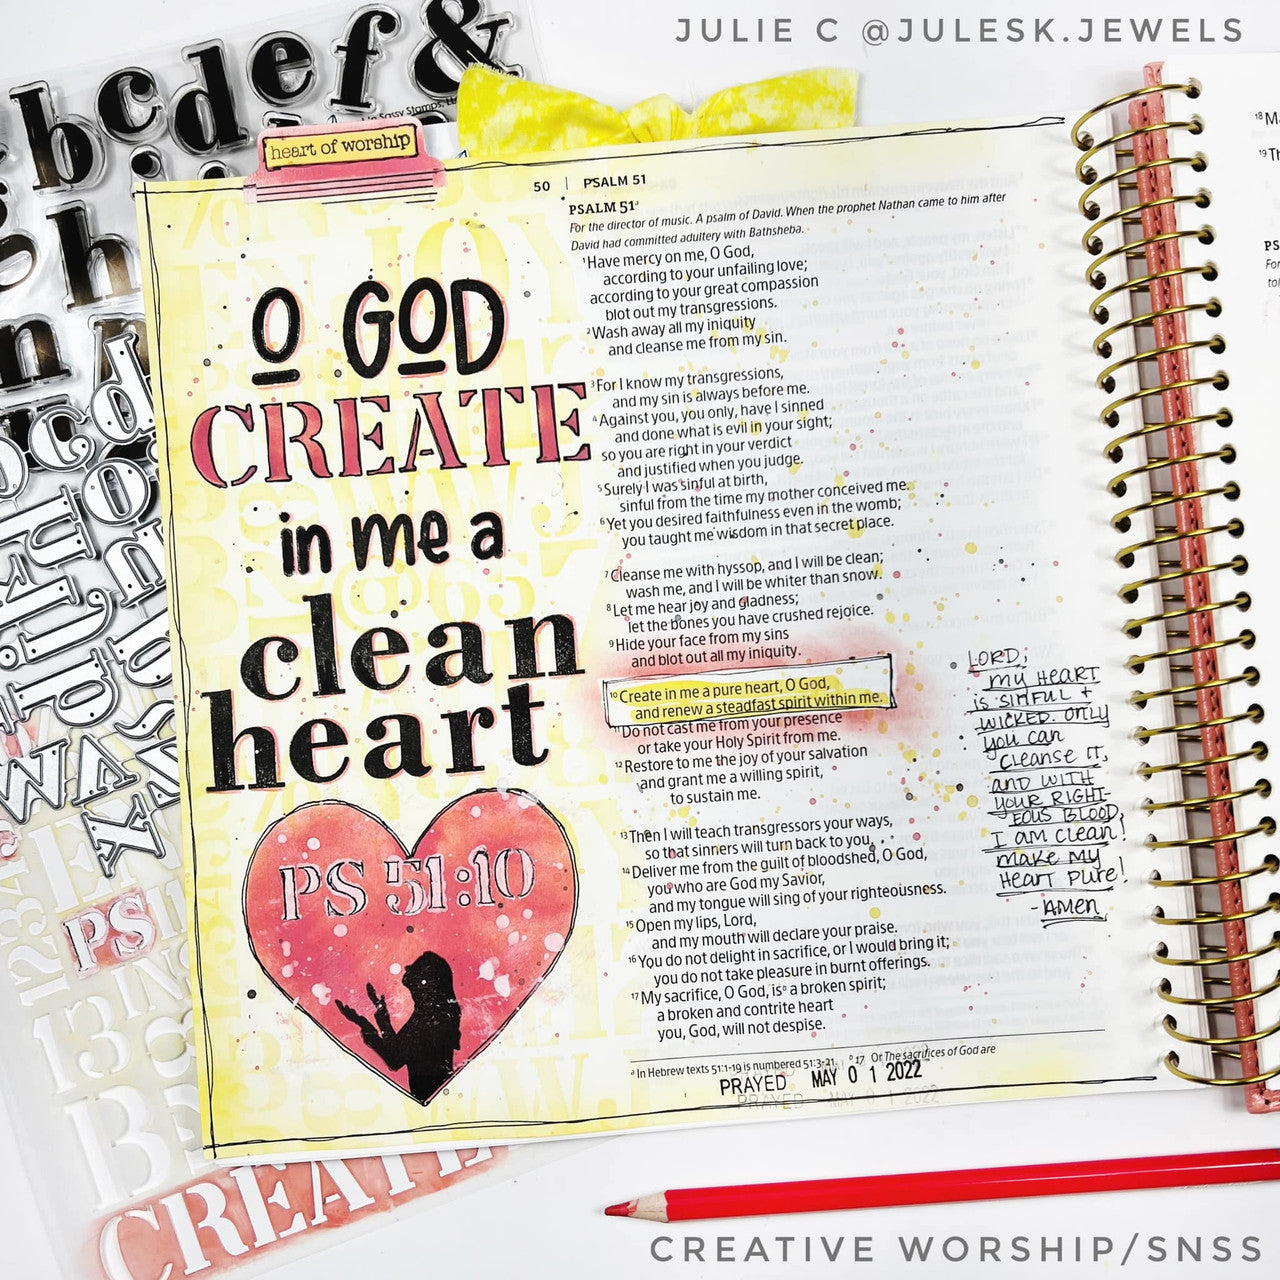 JULIE C @JULESK.JEWELS
b c d e f &
Sassy Stamps, LL
heart of worship
50 | PSALM 51
O GOD
CREATE
in me a
clean
heart
PS 51:10
PSALM 51ᵃ
For the director of music. A psalm of David. When the prophet Nathan came to him after
David had committed adultery with Bathsheba.
1 Have mercy on me, O God,
according to your unfailing love;
according to your great compassion
blot out my transgressions.
2 Wash away all my iniquity
and cleanse me from my sin.
3 For I know my transgressions,
and my sin is always before me.
4 Against you, you only, have I sinned
and done what is evil in your sight;
so you are right in your verdict
and justified when you judge.
5 Surely I was sinful at birth,
sinful from the time my mother conceived me.
6 Yet you desired faithfulness even in the womb;
you taught me wisdom in that secret place.
7 Cleanse me with hyssop, and I will be clean;
wash me, and I will be whiter than snow.
8 Let me hear joy and gladness;
let the bones you have crushed rejoice.
9 Hide your face from my sins
and blot out all my iniquity.
10 Create in me a pure heart, O God,
and renew a steadfast spirit within me.
11 Do not cast me from your presence
or take your Holy Spirit from me.
12 Restore to me the joy of your salvation
and grant me a willing spirit,
to sustain me.
13 Then I will teach transgressors your ways,
so that sinners will turn back to you.
14 Deliver me from the guilt of bloodshed, O God,
you who are God my Savior,
and my tongue will sing of your righteousness.
15 Open my lips, Lord,
and my mouth will declare your praise.
16 You do not delight in sacrifice, or I would bring it;
you do not take pleasure in burnt offerings.
17 My sacrifice, O God, isᵇ a broken spirit;
a broken and contrite heart
you, God, will not despise.
ᵃ In Hebrew texts 51:1-19 is numbered 51:3-21. ᵇ 17 Or The sacrifices of God are
PRAYED MAY 0 1 2022
PRAYED MAY 0 1 2022
LORD,
MY HEART
IS SINFUL +
WICKED. ONLY
YOU CAN
CLEANSE IT,
AND WITH
YOUR RIGHT-
EOUS BLOOD,
I AM CLEAN!
MAKE MY
HEART PURE!
- AMEN
PS
CREATE
CREATIVE WORSHIP/SNSS